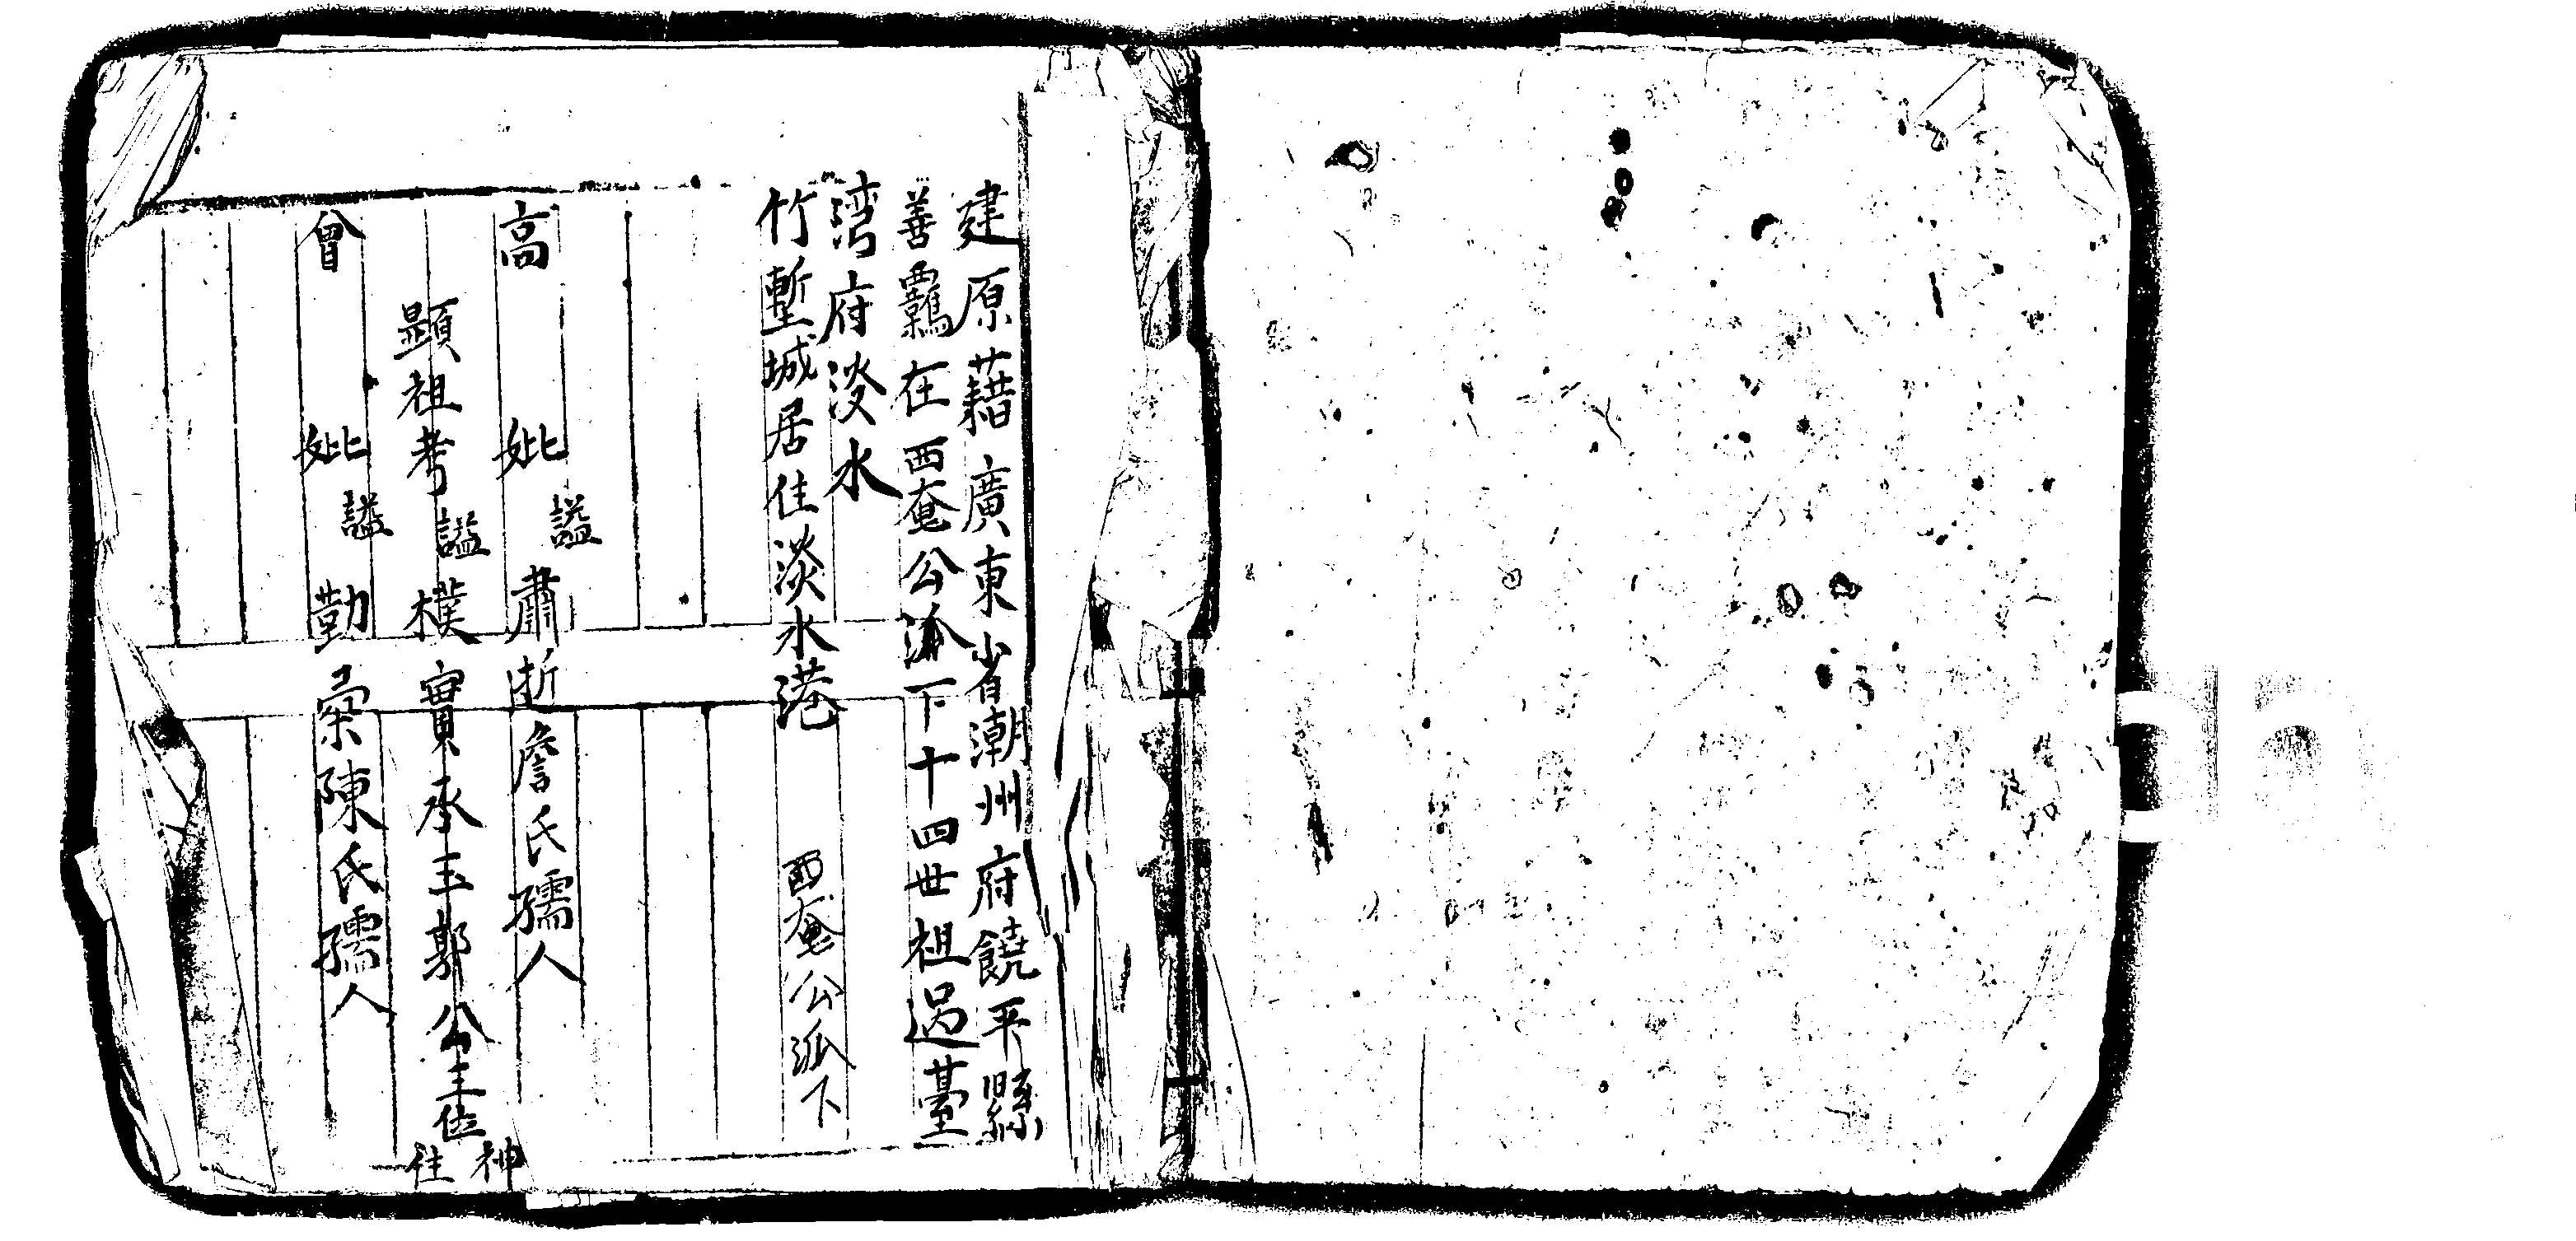 建原藉廣東省潮州府饒平縣
善羇在西奄公派下十四世祖過臺
湾府淡水
竹塹城居住淡水港 西奄公派下
高 妣 謚 肅逝詹氏孺人
顕祖考 謚 樸實承玉郭公主位 神位
曾 妣 謚 勤 陳氏孺人